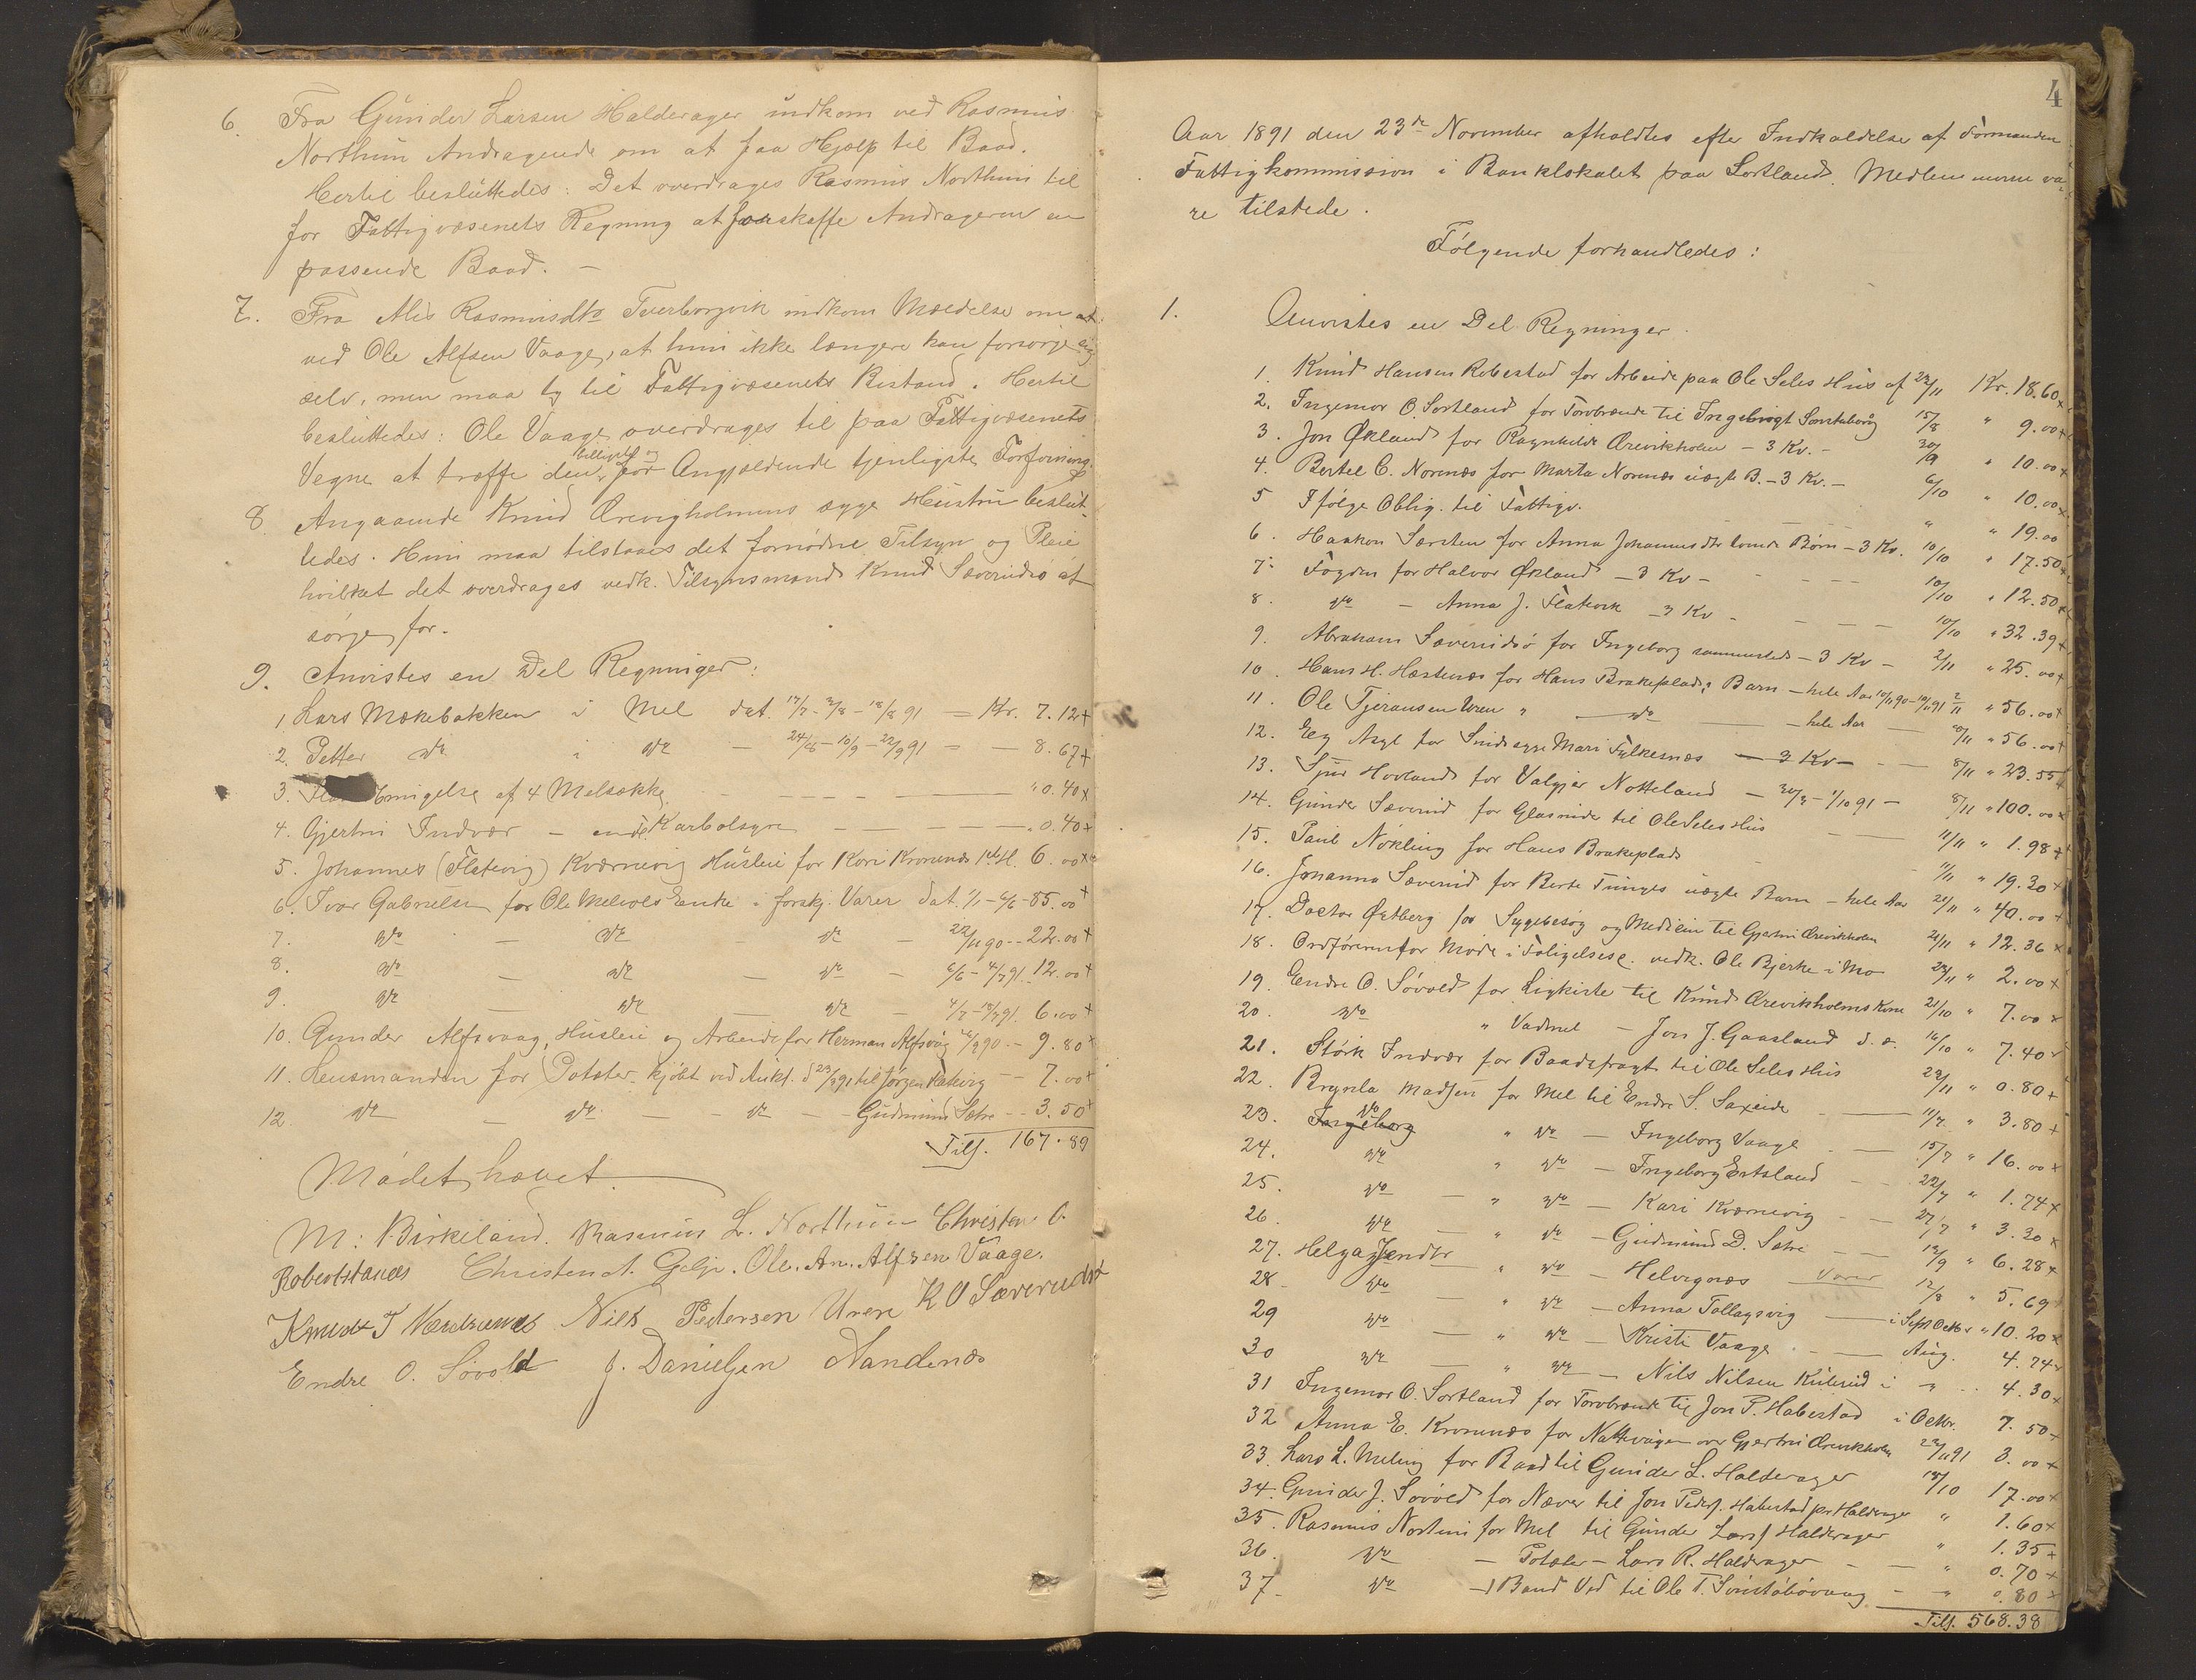 6. Fra Gunder Larsen Halderager indkom ved Rasmus
Northun Andragende om at faa Hjælp til Baad.
Hertil besluttedes: Det overdrages Rasmus Northun til
for Fattigvæsenets Regning at forskaffe Andrageren en
passende Baad. —
7. Fra Alis Rasmusdtr Tverborgvik indkom Mældelse om at
ved Ole Alfsen Vaage, at hun ikke længere kan forsørge sig
selv, men maa ty til Fattigvæsenets Bistand. Hertil
besluttedes: Ole Vaage overdrages til paa Fattigvæsenets
Vegne at træffe den billigste og for Angjældende tjenligste Forføining.
8. Angaaende Knud Ørevigholmens syge Hustru beslut-
tedes. Hun maa tilstaaes det fornødne Tilsyn og Pleie
hvilket det overdrages vedk. Tilsynsmand Knud Sæverudsø at
sørge for.
9. Anvistes en Del Regninger:
1, Lars Mækebakken i Mel dat. 17/7 - 3/8 - 18/8 91 = Kr. 7.12+
2. Petter do i do — 24/8 - 10/9 - 22/9 91 = — 8.67+
3. af 4 Melsække — — — " 0.40x
4. Gjertrui Indvær — Karbolsyre — — — " 0.40+
5. Johannes (Flatevig) Kværnevig Husleie for Kari Kronenes 6.00+
6. Ivar Gabrielsen for Ole Melvels Enke i forskj. Varer dat. 1/1 - 6/6 - 85.00+
7. do — do — do — 22/11 90 - - 22.00+
8. do — do — do — 6/6 - 4/7 91. 12.00+
9. do — do — do — 4/7 - 18/7 91. 6.00+
10. Gunder Alfsvaag, Husleie og Arbeide for Herman Alfsvåg 90 - - 9.80+
11. Lensmanden for Poteter kjøbt ved Aukt. til Jørgen — 7.00+
12 do — do — do — Gudmund Sætre - - 3.50+
Tils. 167.89
Mødet hævet.
M: Birkeland. Rasmus L. Northun Christen O.
Robertstanæs Christen A. Gilje. Ole. An. Alfsen Vaage.
Knudt T Nils Pedersen Uren K O Sæverudsø
Endre O. Søvold J. Danielsen Nandenæs
4
Aar 1891 den 23de November afholdtes efter Indkaldelse af Formanden
Fattigkommission i Banklokalet paa Sortland. Medlemmerne va-
re tilstede.
Følgende forhandledes:
1. Anvistes en Del Regninger.
1. Knud Hansen Robestad for Arbeide paa Ole Seles Hus af 22/11 Kr. 18.60x
2. Ingemor O. Sortland for Torvbrænde til Ingebrigt 15/8 " 9.00+
3. Jon Økland for Ragnhilde Ørevikholm — 3 Kv. — 30/9 " 10.00+
4. Bertel C. Norenæs for Marta Norenæs uægte B. — 3 Kv. — 6/10 " 10.00x
5 Ifølge Oblig. til Fattigv. " " 19.00
6. Haakon Særsten for Anna Johannesdtr tvende Børn — 3 Kv. 10/10 " 17.50x
7. Fogden for Halvor Økland — 3 Kv — 10/10 " 12.50x
8. do — Anna J. Flatevik — 3 Kv — 10/10 " 32.39+
9. Abraham Sæverudsø for Ingeborg sammesteds — 3 Kv — 2/11 " 25.00+
10. Hans H. Hæstenæs for Hans Brakeplads's Barn — hele Aar 10/11 90 - 10/11 91 2/11 " 56.00+
11. Ole Tjeransen Uren " do — hele Aar — " 56.00+
12. Eeg Asyl for Sindssyge Mari Fylkesnæs — 3 Kv — 8/11 " 23.55+
13. Sjur Hovland for Valgjer Notteland — 30/3 - 1/10 91 — 8/11 " 100.00x
14. Gunder Sæverud for Glasruder til Ole Seles Hus — 11/11 " 1.98+
15. Paul Nøkling for Hans Brakeplads 11/11 " 19.30+
16. Johanna Sæverud for Berte Tunges uægte Barn — hele Aar 21/11 " 40.00+
17. Doctor Østberg for Sygebesøg og Medicin til Gjertrui Ørevikholm 21/11 " 12.36x
18. Ordføreren for Møde i Foligelsesc. vedk. Ole Bjerke i Mo 23/11 " 2.00x
19. Endre O. Søvold for Ligkiste til Knud Ørevikholms Kone 21/10 " 7.00x
20. do " Vadmel — Jon J. Gaasland d. æ. 16/10 " 7.40x
21. Størk Indvær for Baadsfragt til Ole Seles Hus 23/11 " 0.80+
22. Brynla Madsen for Mel til Endre S. Saxeide — 11/7 " 3.80+
23. do " do — Ingeborg Vaage — 15/7 " 16.00x
24. do " do — Ingeborg Ertsland — 22/7 " 1.74x
25. do — " do — Kari Kværnevig — 27/7 " 3.20x
26. do — " do — Gudmund D. Sætre — 12/9 " 6.28x
27. Helga Jendtr " do — Helvignæs Varer 12/8 " 5.69
28 do — " do — Anna Tollagsvig — i Sept Octbr " 10.20x
29 do — " do — Kristi Vaage — Aug. 4.74x
30 do — " do — Nils Nilsen i " 4.30x
31 Ingemor O. Sortland for Torvbrænde til Jon P. Habestad i Octbr. 7.50x
32 Anna E. Kronenæs for Nattevaagen over Gjertrui Ørevikholm 22/11 91 3.00+
33. Lars L. Meling for Baad til Gunder L. Halderager 18/10 17.00x
34. Gunder J. Søvold for Næver til Jon Peders. Habestad pr Halderager " 1.60x
35. Rasmus Nortun for Mel til Gunder Lars. Halderager " 1.35+
36. do — Poteter — Lars R. Halderager — " 0.70+
37 - do — 1 Baad Ved til Ole T. — " 0.80x
Tils. 568.38